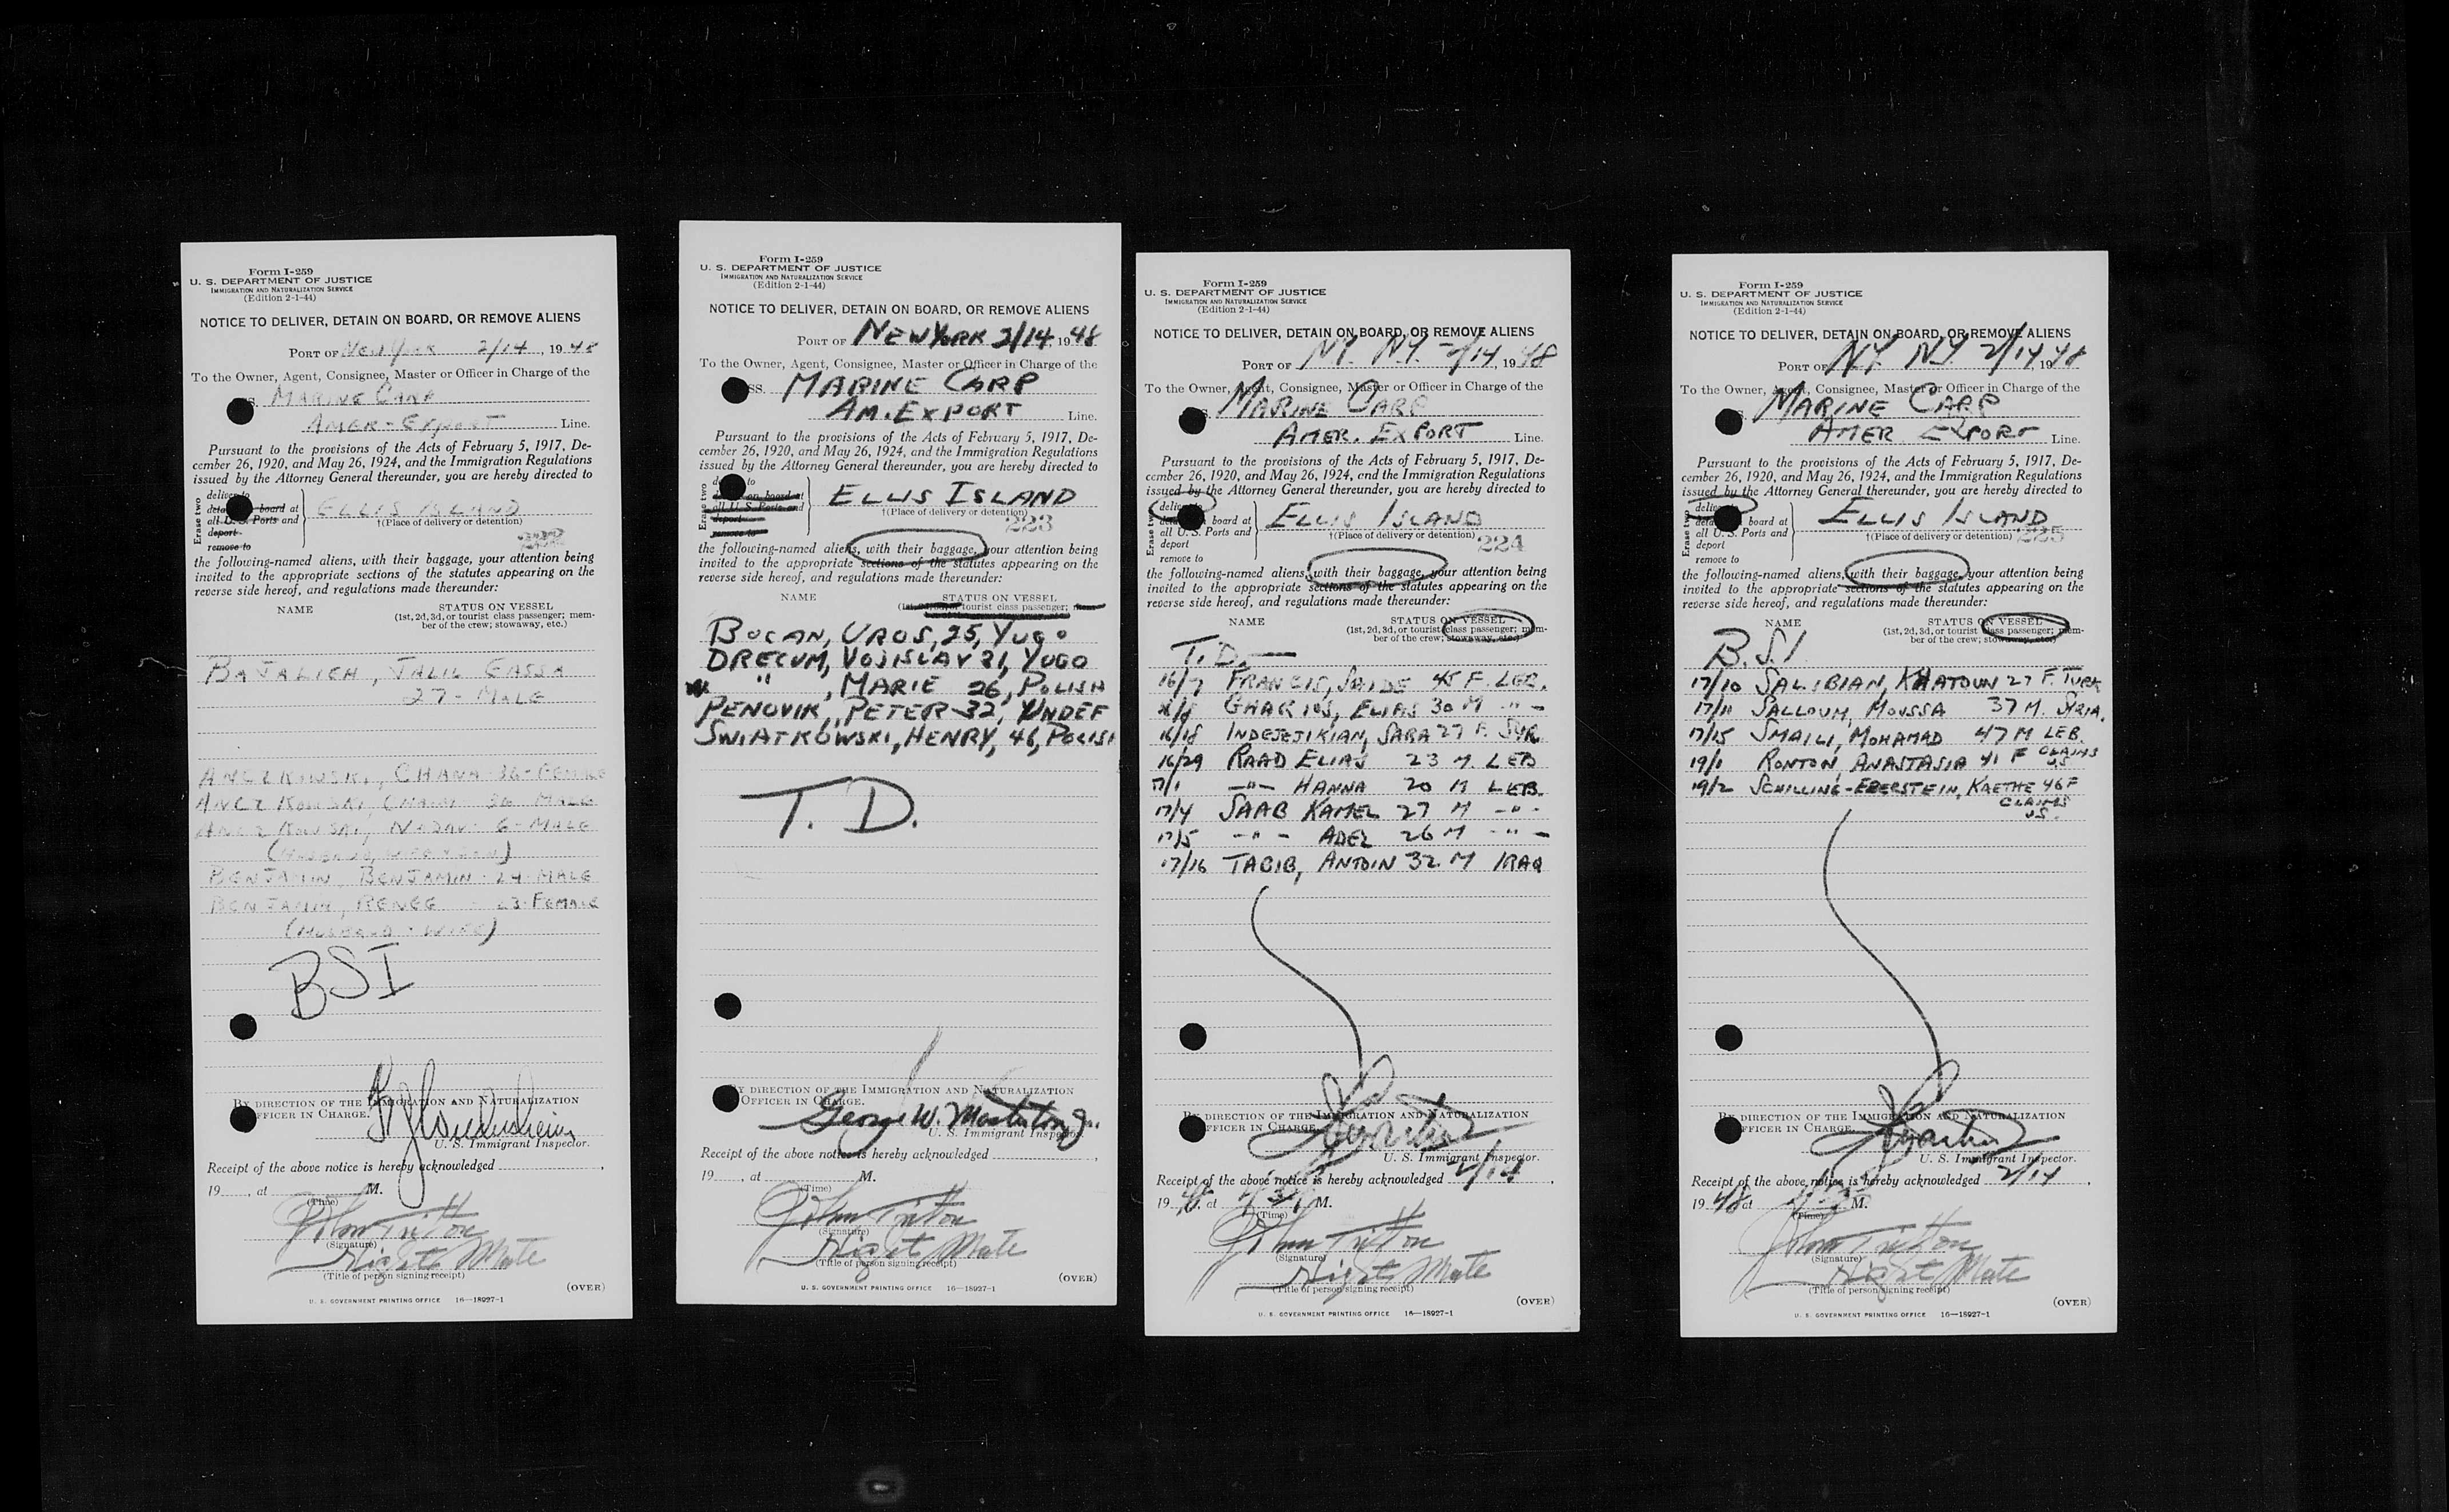 Form I-259
U. S. DEPARTMENT OF JUSTICE
IMMIGRATION AND NATURALIZATION SERVICE
(Edition 2-1-44)
NOTICE TO DELIVER, DETAIN ON BOARD, OR REMOVE ALIENS
PORT OF NEW YORK 2/14, 1948
To the Owner, Agent, Consignee, Master or Officer in Charge of the
MARINE CARP
AMER-EXPORT Line.
Pursuant to the provisions of the Acts of February 5, 1917, De-
cember 26, 1920, and May 26, 1924, and the Immigration Regulations
issued by the Attorney General thereunder, you are hereby directed to
Erase two
deliver to
board at
all U. S. Ports and
deport
remove to
ELLIS ISLAND
†(Place of delivery or detention)
the following-named aliens, with their baggage, your attention being
invited to the appropriate sections of the statutes appearing on the
reverse side hereof, and regulations made thereunder:
NAME STATUS ON VESSEL
(1st, 2d, 3d, or tourist class passenger; mem-
ber of the crew; stowaway, etc.)
BAJALIEH, JALIL EASSA
27 - MALE
CHANA FEMALE
MALE
6 - MALE
BENJAMIN, BENJAMIN - 24 - MALE
BENJAMIN, RENEE - 23 - FEMALE
(HUSBAND - WIFE)
BSI
BY DIRECTION OF THE IMMIGRATION AND NATURALIZATION
OFFICER IN CHARGE.
U. S. Immigrant Inspector.
Receipt of the above notice is hereby acknowledged
19 , at M.
(Time)
John Tritton
(Signature)
Night Mate
(Title of person signing receipt)
(OVER)
U. S. GOVERNMENT PRINTING OFFICE 16—18927-1
Form I-259
U. S. DEPARTMENT OF JUSTICE
IMMIGRATION AND NATURALIZATION SERVICE
(Edition 2-1-44)
NOTICE TO DELIVER, DETAIN ON BOARD, OR REMOVE ALIENS
PORT OF NEW YORK 2/14 1948
To the Owner, Agent, Consignee, Master or Officer in Charge of the
SS. MARINE CARP
AM. EXPORT Line.
Pursuant to the provisions of the Acts of February 5, 1917, De-
cember 26, 1920, and May 26, 1924, and the Immigration Regulations
issued by the Attorney General thereunder, you are hereby directed to
Erase two
to
on board at
all U. S. Ports and
deport
remove to
ELLIS ISLAND
†(Place of delivery or detention)
223
the following-named aliens, with their baggage, your attention being
invited to the appropriate sections of the statutes appearing on the
reverse side hereof, and regulations made thereunder:
NAME STATUS ON VESSEL
tourist class passenger;
BOCAN, UROS, 25, YUGO
DRECUM, VOJISLAV 31, YUGO
" , MARIE 26, POLISH
PENOVIK, PETER 32, UNDEF
SWIATKOWSKI, HENRY, 46, POLISH
T. D.
BY DIRECTION OF THE IMMIGRATION AND NATURALIZATION
OFFICER IN CHARGE.
George W. Masterton Jr.
U. S. Immigrant Inspector.
Receipt of the above notice is hereby acknowledged
19 , at M.
(Time)
John Tritton
(Signature)
Night Mate
(Title of person signing receipt)
(OVER)
U. S. GOVERNMENT PRINTING OFFICE 16—18927-1
Form I-259
U. S. DEPARTMENT OF JUSTICE
IMMIGRATION AND NATURALIZATION SERVICE
(Edition 2-1-44)
NOTICE TO DELIVER, DETAIN ON BOARD, OR REMOVE ALIENS
PORT OF NY. NY. 2/14, 1948
To the Owner, Agent, Consignee, Master or Officer in Charge of the
MARINE CARP
AMER. EXPORT Line.
Pursuant to the provisions of the Acts of February 5, 1917, De-
cember 26, 1920, and May 26, 1924, and the Immigration Regulations
issued by the Attorney General thereunder, you are hereby directed to
Erase two
deliver
board at
all U. S. Ports and
deport
remove to
ELLIS ISLAND
†(Place of delivery or detention)
224
the following-named aliens, with their baggage, your attention being
invited to the appropriate sections of the statutes appearing on the
reverse side hereof, and regulations made thereunder:
NAME STATUS ON VESSEL
(1st, 2d, 3d, or tourist class passenger; mem-
ber of the crew; stowaway, etc.)
T. D. —
16/7 FRANCIS, SAIDE 45 F. LEB.
GHARIOS, ELIAS 30 M - " -
16/18 INDEJEJIKIAN, SARA 27 F. SYR.
16/29 RAAD ELIAS 23 M. LEB
17/1 - " - HANNA 20 M LEB.
17/4 SAAB KAMEL 27 M - " -
17/5 - " - ADEL 26 M - " -
17/16 TABIB, ANTOIN 32 M IRAQ
BY DIRECTION OF THE IMMIGRATION AND NATURALIZATION
OFFICER IN CHARGE.
U. S. Immigrant Inspector.
Receipt of the above notice is hereby acknowledged 2/14,
1948, at M.
(Time)
John Tritton
(Signature)
Night Mate
(Title of person signing receipt)
(OVER)
U. S. GOVERNMENT PRINTING OFFICE 16—18927-1
Form I-259
U. S. DEPARTMENT OF JUSTICE
IMMIGRATION AND NATURALIZATION SERVICE
(Edition 2-1-44)
NOTICE TO DELIVER, DETAIN ON BOARD, OR REMOVE ALIENS
PORT OF NY. NY. 2/14, 1948
To the Owner, Agent, Consignee, Master or Officer in Charge of the
MARINE CARP
AMER EXPORT Line.
Pursuant to the provisions of the Acts of February 5, 1917, De-
cember 26, 1920, and May 26, 1924, and the Immigration Regulations
issued by the Attorney General thereunder, you are hereby directed to
Erase two
board at
all U. S. Ports and
deport
remove to
ELLIS ISLAND
†(Place of delivery or detention)
225
the following-named aliens, with their baggage, your attention being
invited to the appropriate sections of the statutes appearing on the
reverse side hereof, and regulations made thereunder:
NAME STATUS ON VESSEL
(1st, 2d, 3d, or tourist class passenger; mem-
ber of the crew; stowaway, etc.)
B.S.I.
17/10 SALIBIAN, KHATOUN 27 F. TURK
17/11 SALLOUM, MOUSSA 37 M. SYRIA.
17/15 SMAILI, MOHAMAD 47 M LEB.
19/1 RONTON, ANASTASIA 41 F CLAIMS US
19/2 SCHILLING-EBERSTEIN, KAETHE 46 F
CLAIMS
US.
BY DIRECTION OF THE IMMIGRATION AND NATURALIZATION
OFFICER IN CHARGE.
U. S. Immigrant Inspector.
Receipt of the above notice is hereby acknowledged 2/14,
1948 at M.
(Time)
John Tritton
(Signature)
Night Mate
(Title of person signing receipt)
(OVER)
U. S. GOVERNMENT PRINTING OFFICE 16—18927-1